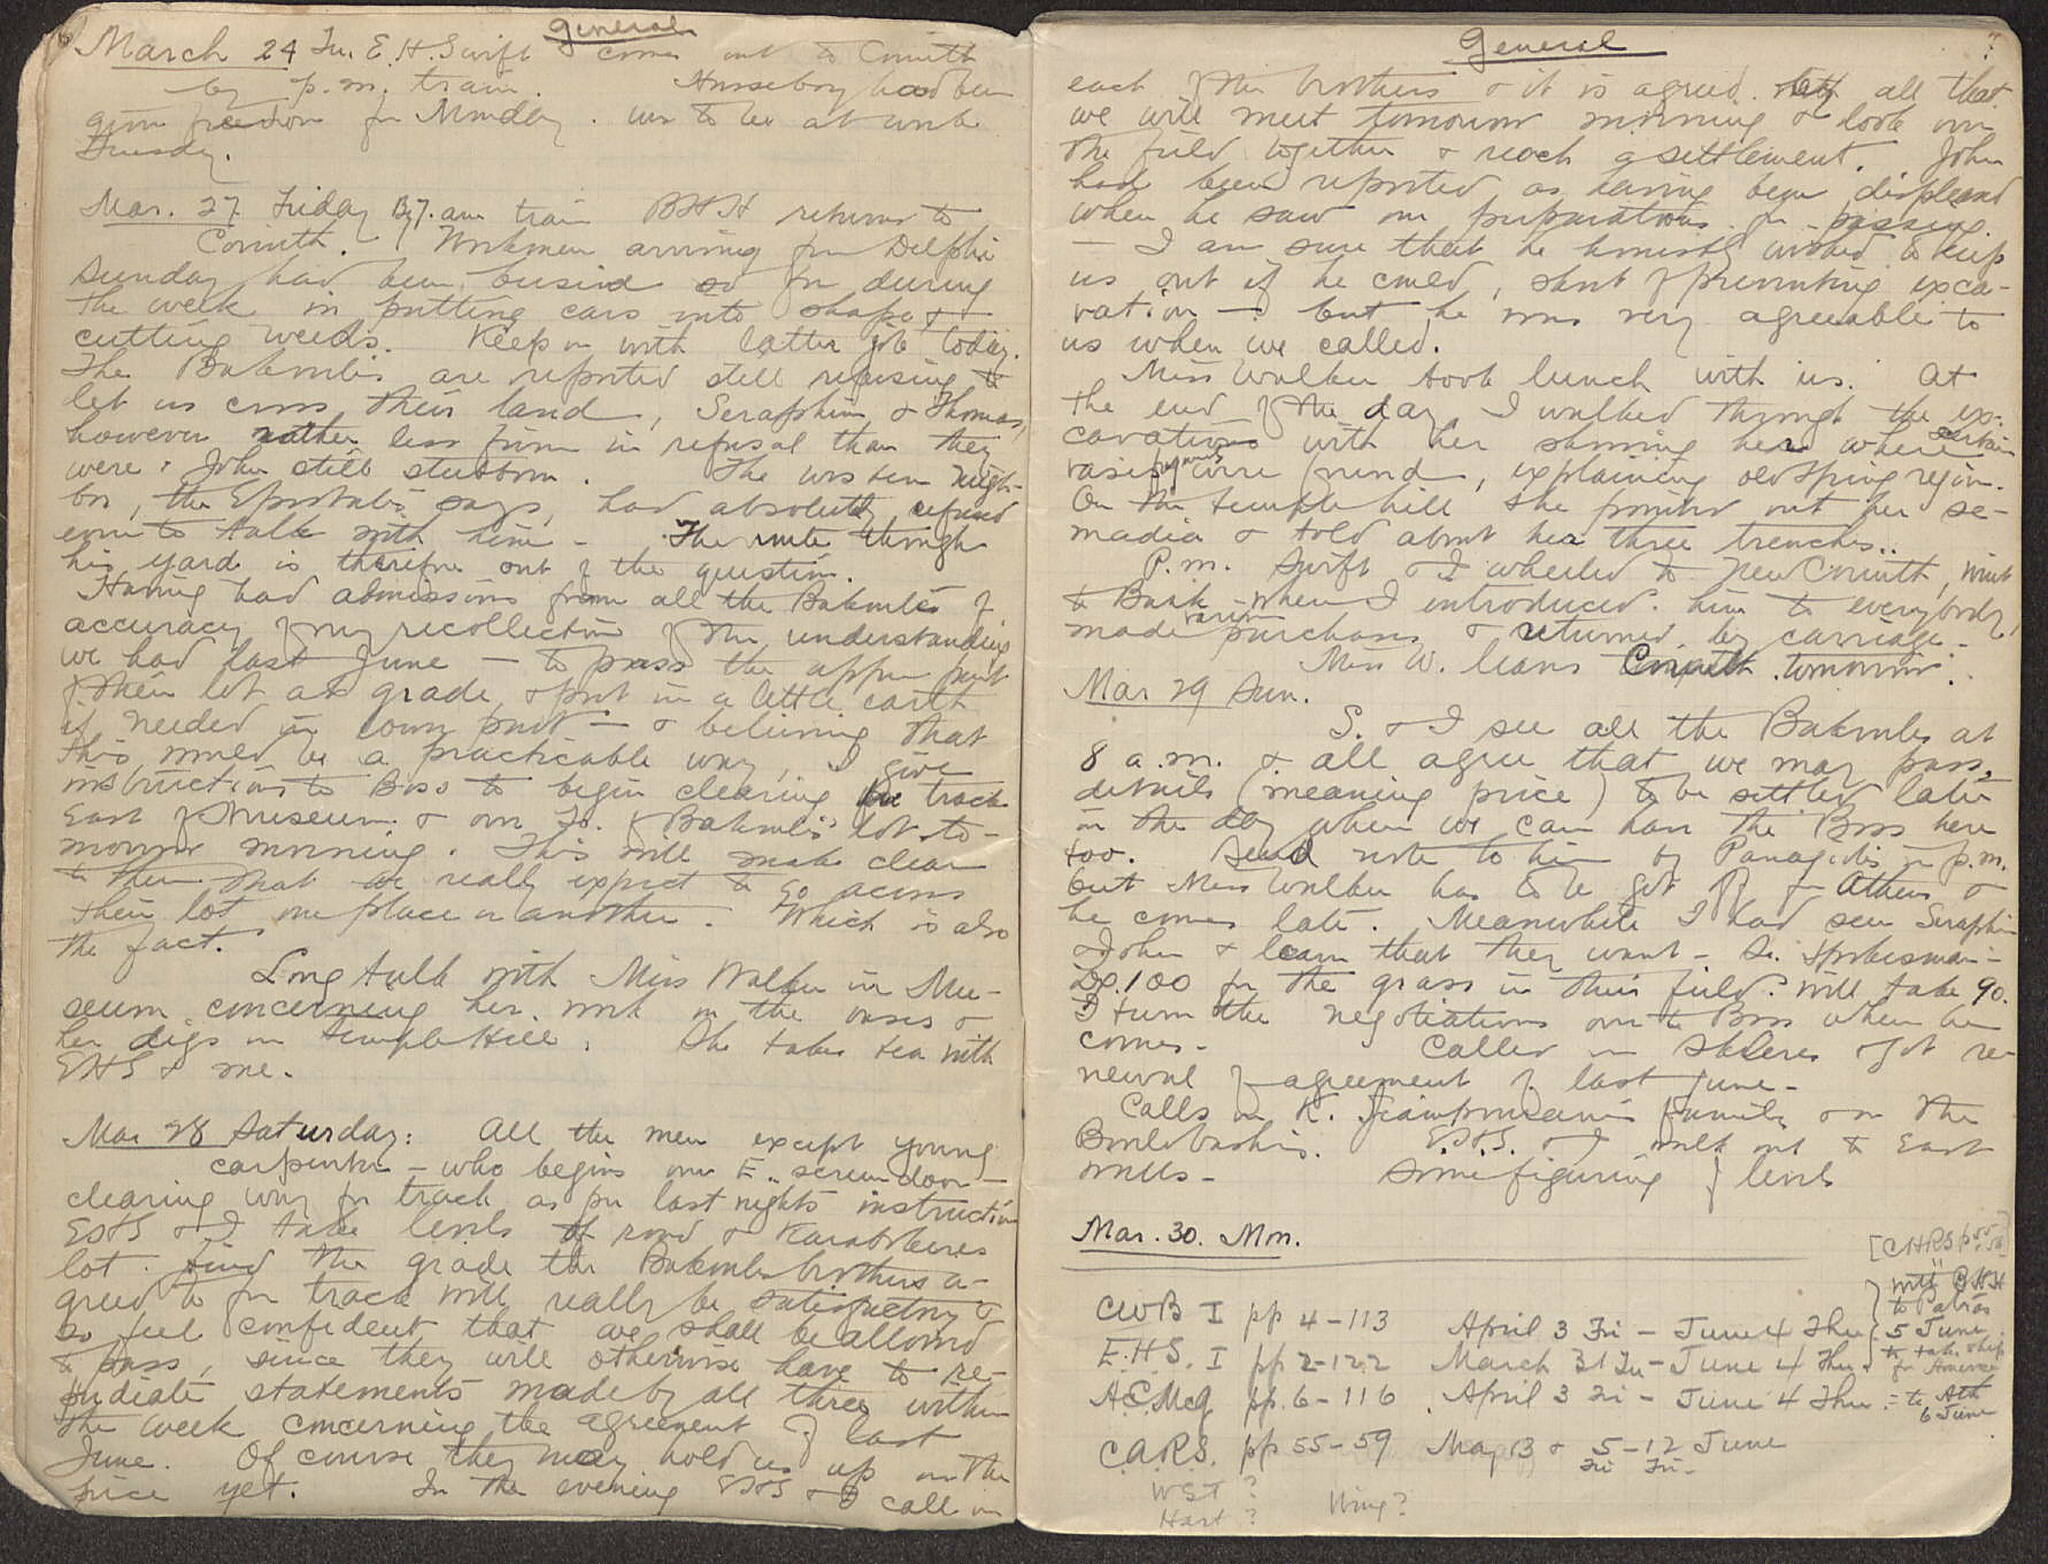 General
March 24 Tu. E.H.Swift comes out to Corinth
by p.m. train. had been
given freedom for Monday. was to be at work
Tuesday.
Mar. 27 Friday By 7. am train BHH returns to
Corinth. Workmen arriving from Delphi
Sunday had been busied so far during
the week in putting cars into shape &
cutting weeds. Keep on with latter job today.
The Bakoulis are reported still refusing to
let us cross their land, Seraphim & Thomas,
however rather less firm in refusal than they
were. John still stubborn. The western neigh-
bor, the Epistatis says, had absolutely refused
even to talk with him - The route through
his yard is therefore out of the question.
Having had admissions from all the Bakoulis of
accuracy of my recollection of the understanding
we had last June — to pass the upper part
of their lot at grade, & put in a little earth
if needed in lower part — & believing that
this would be a practicable way, I give
instructions to Boss to begin clearing for track
East of Museum & over to Bakoulis' lot to-
morrow morning. This will make clear
to them that we really expect to go across
their lot one place or another. Which is also
the fact.
Long talk with Miss Walker in Mu-
seum concerning her work on the vases &
her digs on Temple Hill. She takes tea with
EHS & me.
Mar 28 Saturday: All the men except young
carpenter - who begins our E. screen door -
clearing way for track as per last nights instruction
EHS & I take levels of road &
lot. Find the grade the Bakoulis brothers a-
greed to for track will really be satisfactory &
so feel confident that we shall be allowed
to pass, since they will otherwise have to re-
pudiate statements made by all three within
the week concerning the agreement of last
June. Of course they may hold us up on the
price yet. In the evening EHS & I call on
General
7
each of the brothers & it is agreed with all that
we will meet tomorrow morning & look over
the field together & reach a settlement. John
had been reported as having been displeased
when he saw our preparations for passing.
— I am sure that he honestly wished to keep
us out if he could, short of preventing exca-
vation — but he was very agreeable to
us when we called.
Miss Walker took lunch with us. At
the end of the day I walked through the ex-
cavations with her showing her where certain
vases were found, explaining old spring region.
On the temple hill she pointed out her se-
madia & told about her three trenches..
P.m. Swift & I wheeled to New Corinth, went
to Bank where I introduced him to everybody,
made various purchases & returned by carriage -
Miss W. leaves Corinth tomorrow.
Mar 29 Sun.
S. & I see all the Bakoulis at
8 a.m. & all agree that we may pass,
details (meaning price) to be settled later
in the day when we can have the Boss here
too. Send note to him by Panagiotis in p.m.
but Miss Walker has to be got off for Athens &
he comes late. Meanwhile I had seen Seraphim
& John & learn that they want - S. spokesman -
Dr. 100 for the grass in their field. Will take 90.
I turn the negotiations over to Boss when he
comes - Called on & got re-
newal of agreement of last June -
Calls on K. family & on the
EHS. & I walk out to East
mills - Some figuring of levels
Mar. 30. Mon.
[CARS p 55-59]
CWB I pp 4-113 April 3 Fri - June 4 Thu
with BHH
to Patras
5 June
to take ship
for America
E.H.S. I pp 2-122 March 31 Tu - June 4 Thu.
A.E.McG pp. 6-116 April 3 Fri - June 4 Thu. = to Ath
6 June
C.A.R.S. pp 55-59 May 13 & 5-12 June
Fri Fri -
WST ?
Hart ? Wing?